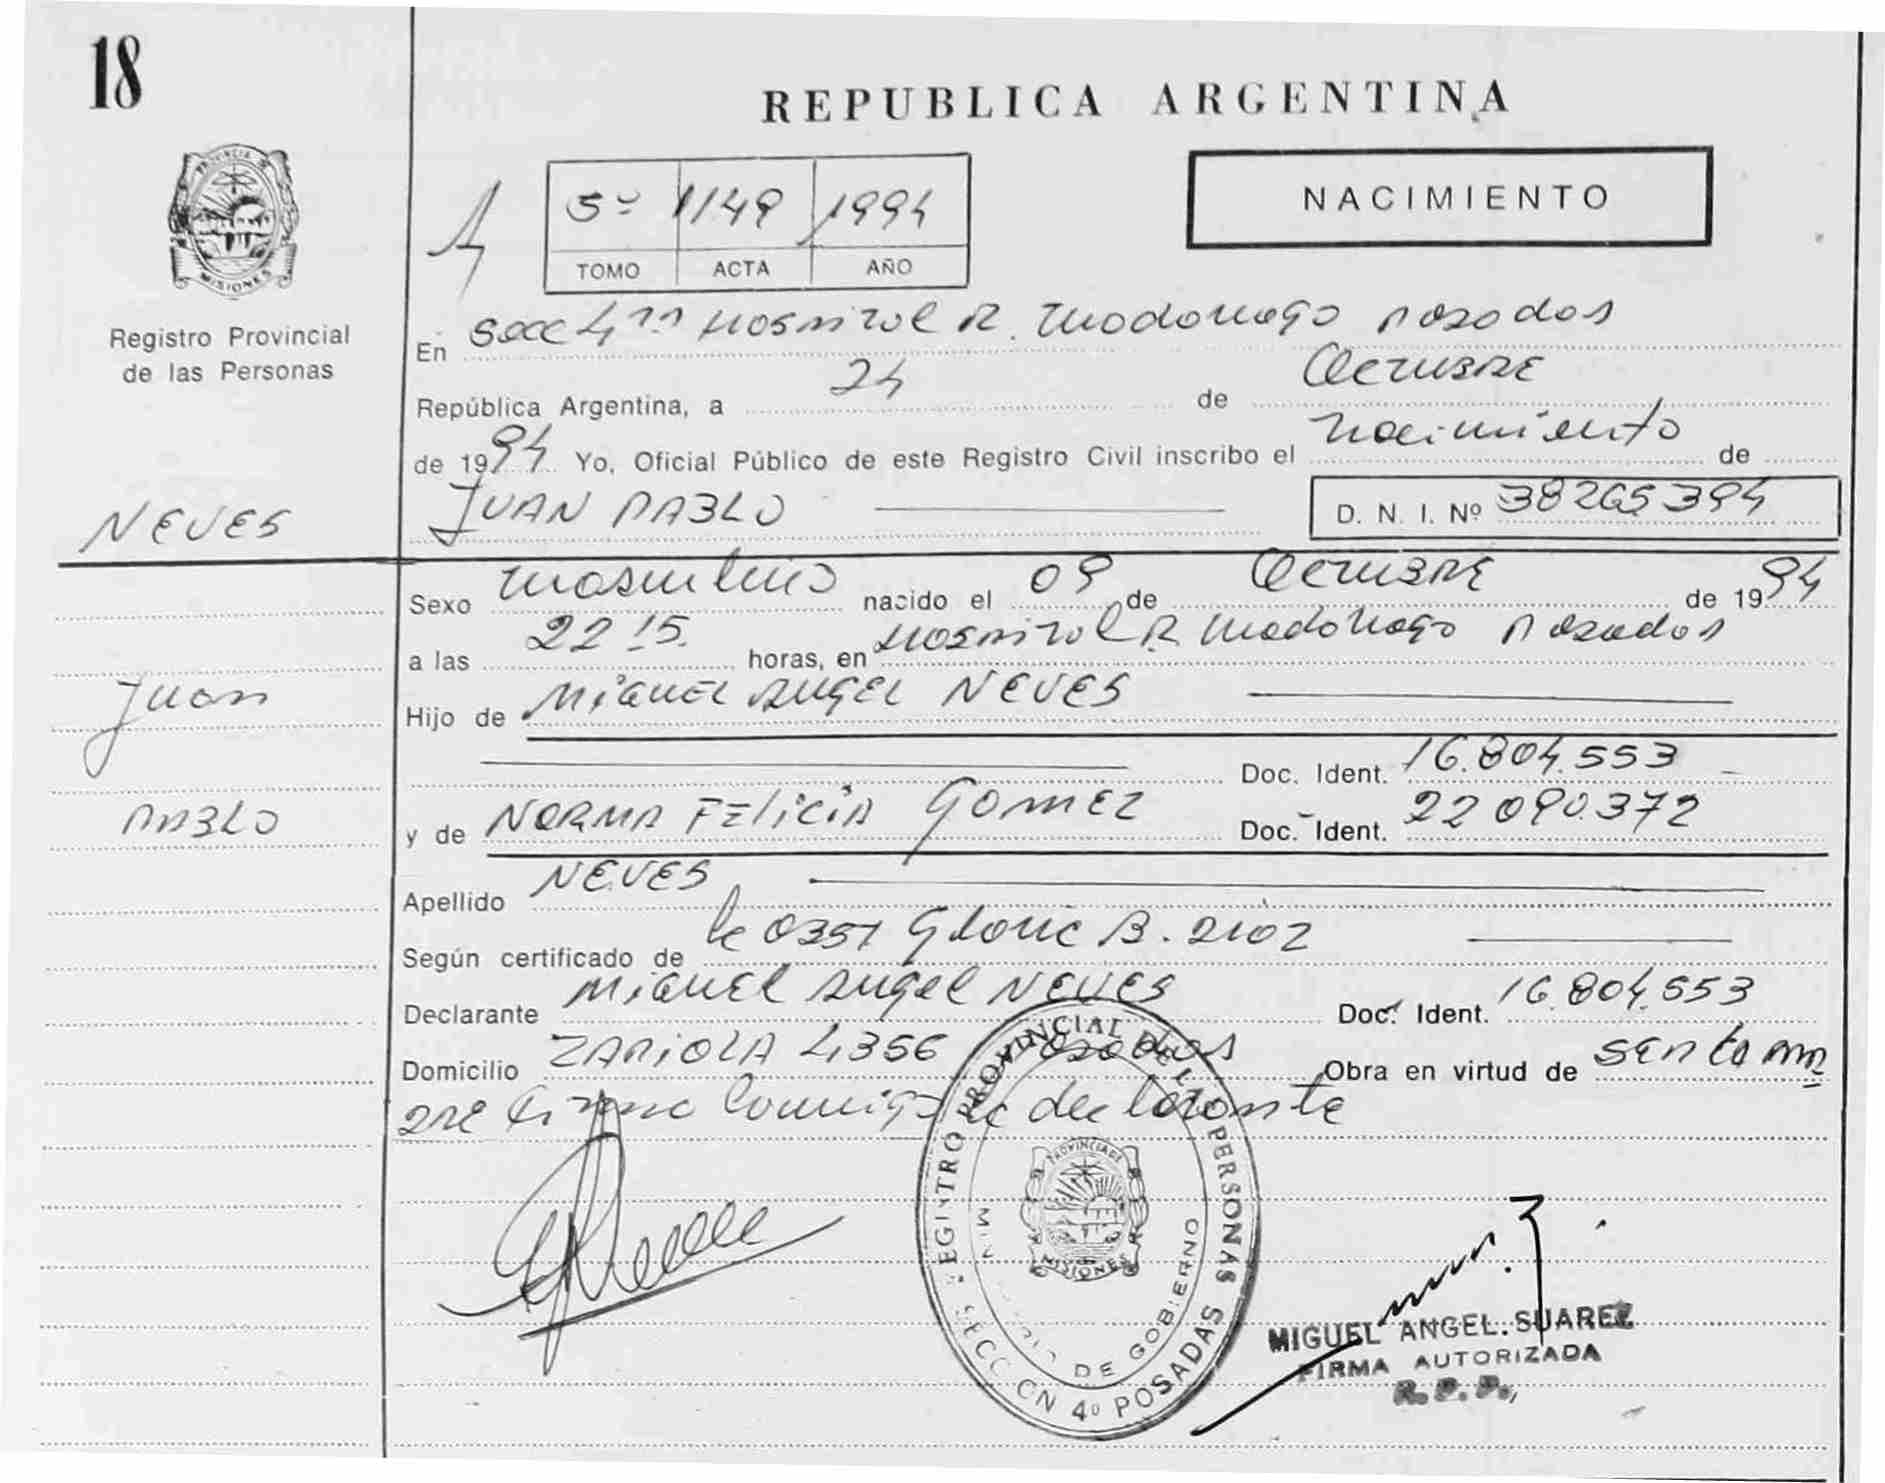 18
REPUBLICA ARGENTINA
PROVINCIA DE
MISIONES
Registro Provincial
de las Personas
5º 1149 1994
TOMO ACTA AÑO
NACIMIENTO
En Secc 4ta Hospital R. Madariaga Posadas
República Argentina, a 24 de Octubre
de 1994 Yo, Oficial Público de este Registro Civil inscribo el nacimiento de
NEVES
JUAN PABLO D. N. I. Nº 38265394
Sexo masculino nacido el 09 de Octubre de 1994
a las 22 15. horas, en Hospital R Madariaga Posadas
Juan
Hijo de MIGUEL ANGEL NEVES
Doc. Ident. 16.804.553
PABLO
y de NORMA FELICIA GOMEZ Doc. Ident. 22 090.372
Apellido NEVES
Según certificado de 0351 Gloria B.
Declarante MIGUEL ANGEL NEVES Doc. Ident. 16.804.553
Domicilio ZAPIOLA 4356 Posadas Obra en virtud de
firma conmigo el declarante
REGISTRO PROVINCIAL DE LAS PERSONAS
DE GOBIERNO
PROVINCIA DE
MISIONES
SECCION 4º POSADAS
MIGUEL ANGEL SUAREZ
FIRMA AUTORIZADA
R. P. P.